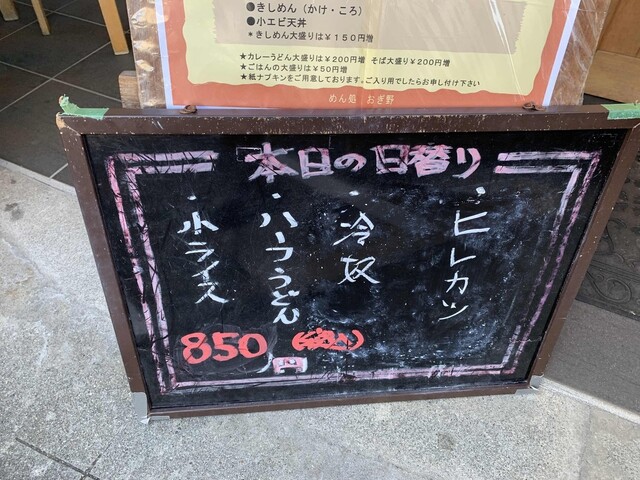 ●きしめん（かけ・ころ）
●小エビ天丼
＊きしめん大盛りは￥１５０円増
★カレーうどん大盛りは￥２００円増 そば大盛り￥２００円増
★ごはんの大盛りは￥５０円増
★紙ナプキンをご用意しております。ご入り用でしたらお申し付け下さい
めん処 おぎ野
本日の日替り
・ヒレカツ
・冷奴
・ハーフうどん
・小ライス
850円